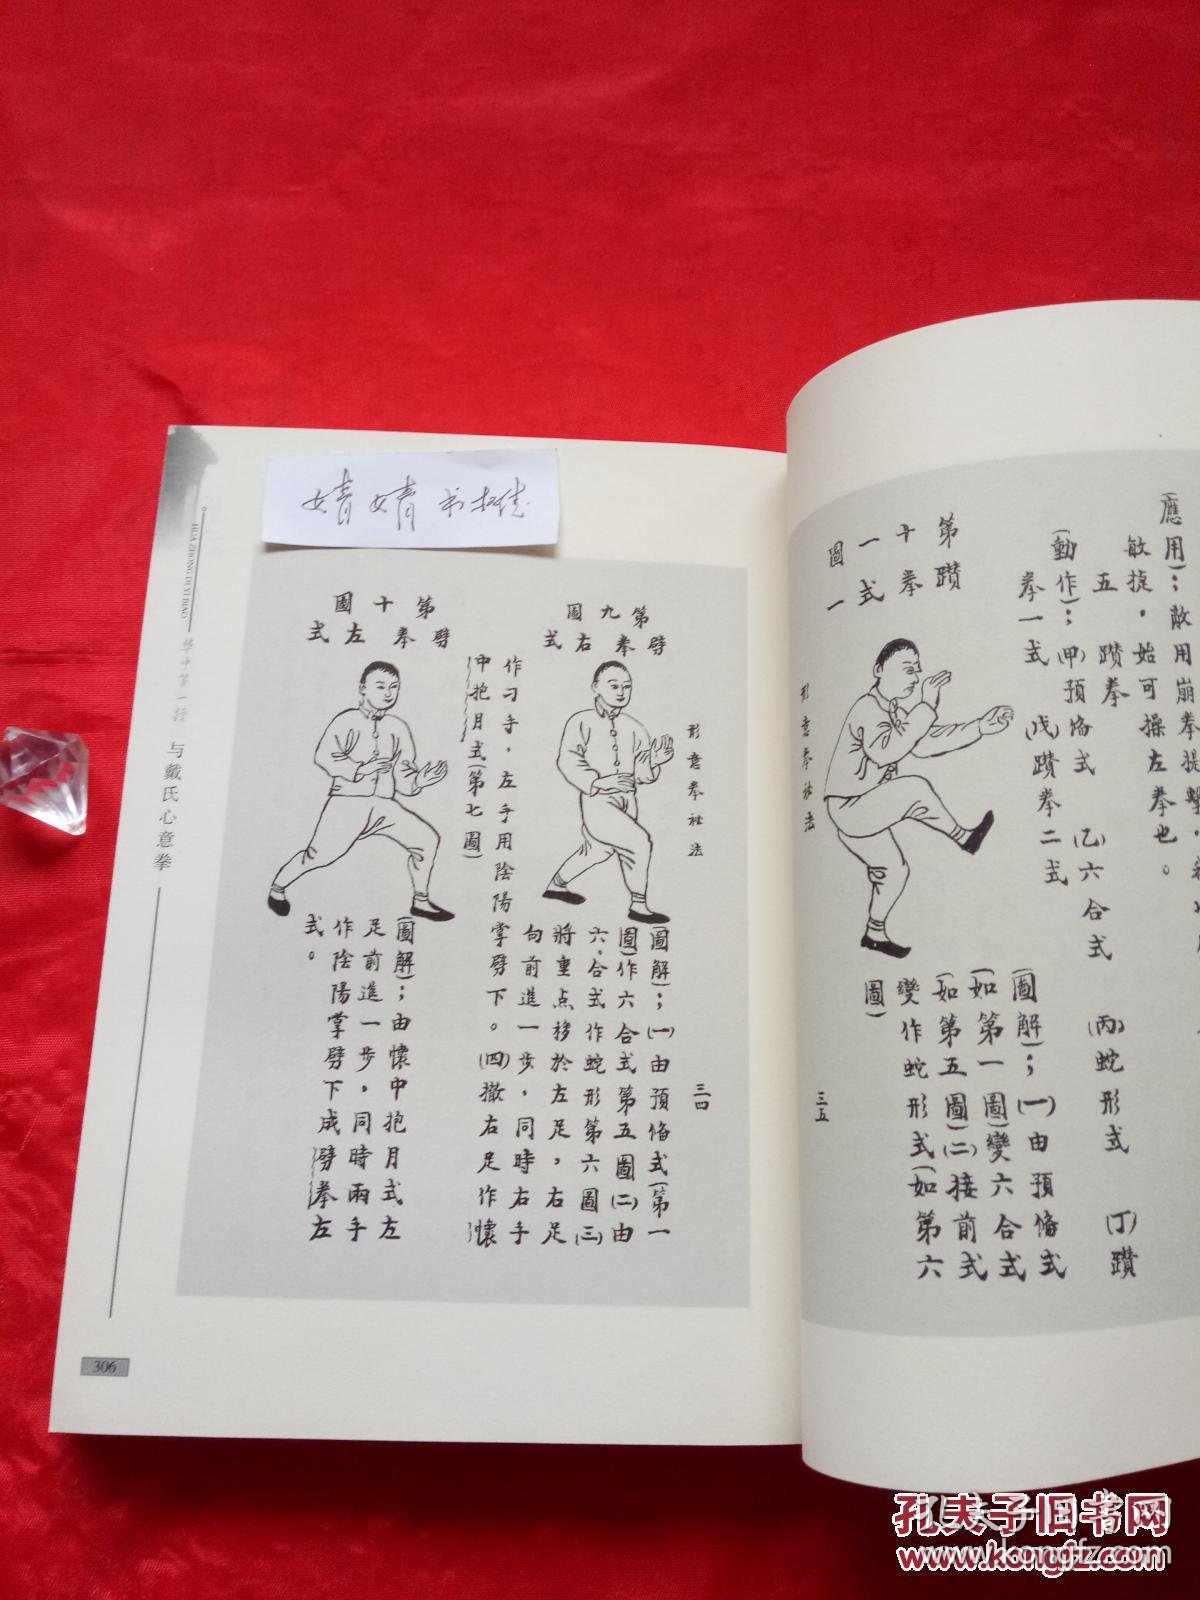 HUA ZHONG DI YI BIAO 华中第一镖 与戴氏心意拳
306
婧婧书
形意拳社法 三四
第九圖
劈拳右式
(圖解)；(一)由預俻式(第一
圖)作六合式第五圖(二)由
六合式作蛇形第六圖(三)
將重点移於左足，右足
向前進一步，同時右手
作刁手，左手用陰陽掌劈下。(四)撤右足作懷
中抱月式(第七圖)
第十圖
劈拳左式
(圖解)；由懷中抱月式左
足前進一步，同時兩手
作陰陽掌劈下成劈拳左
式。
應用)；敵用崩拳提擊，
敏捷，始可操左拳也。
五 躦拳
(動作)；(甲)預俻式 (乙)六合式 (丙)蛇形式 (丁)躦
拳一式 (戊)躦拳二式
第十一圖
躦拳式一
(圖解)；(一)由預俻式
(如第一圖)變六合式
(如第五圖)(二)接前式
變作蛇形式(如第六
圖)
形意拳社法 三五
孔夫子旧书网
www.kongfz.com